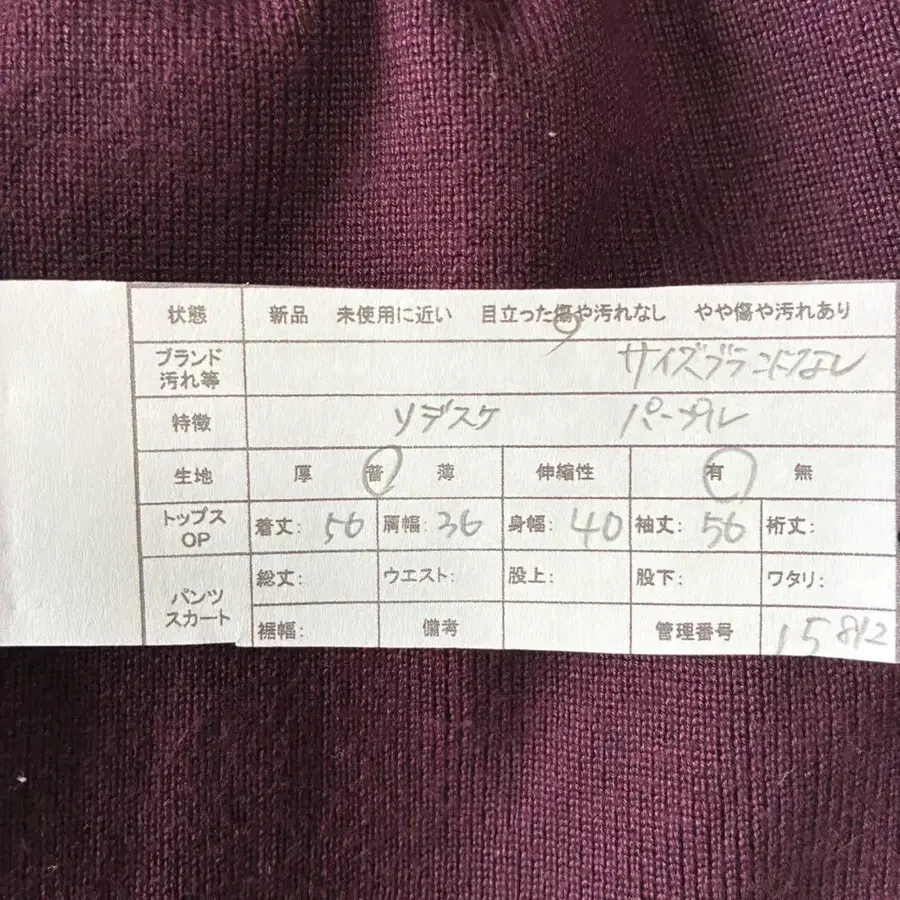 状態 新品 未使用に近い 目立った傷や汚れなし やや傷や汚れあり
ブランド
汚れ等 サイズブランドなし
特徴 ソデスケ パープル
生地 厚 普 薄 伸縮性 有 無
トップス
OP 着丈: 56 肩幅: 36 身幅: 40 袖丈: 56 裄丈:
パンツ
スカート 総丈: ウエスト: 股上: 股下: ワタリ:
裾幅: 備考 管理番号 15812